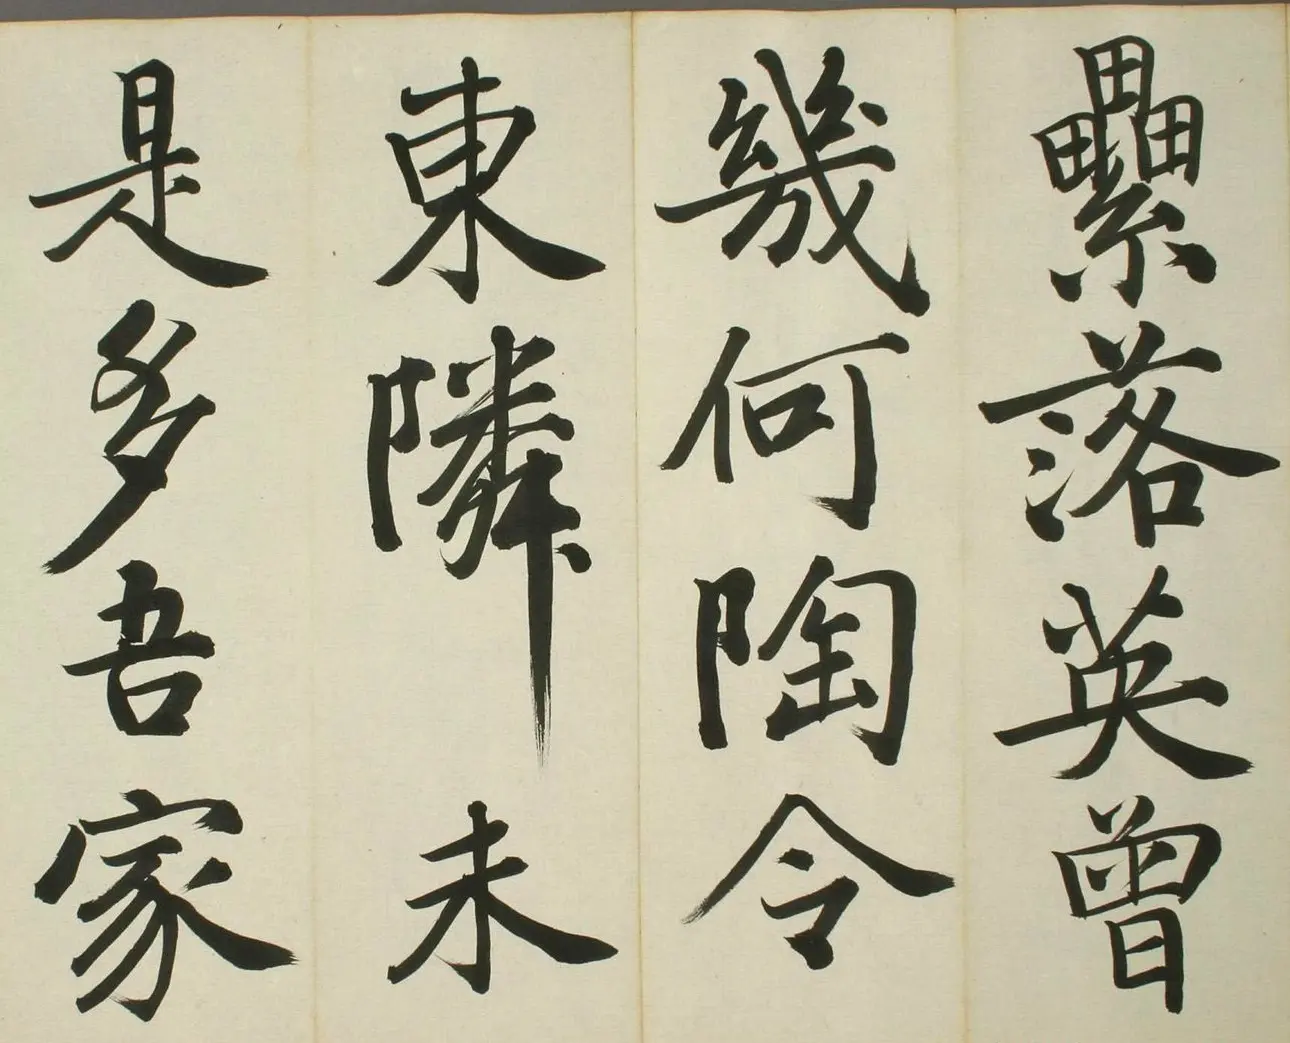 纍落英曾
幾何陶令
東隣未
是多吾家